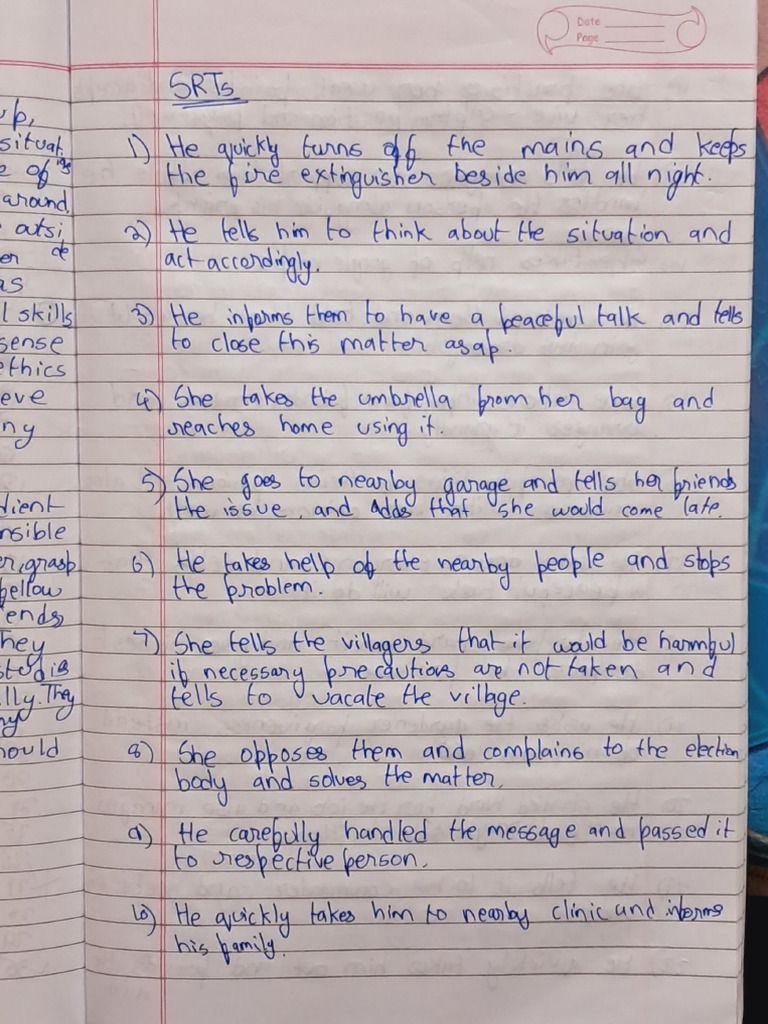 Date
Page
SRTs
1) He quickly turns off the mains and keeps
the fire extinguisher beside him all night.
2) He tells him to think about the situation and
act accordingly.
3) He informs them to have a peaceful talk and tells
to close this matter asap.
4) She takes the umbrella from her bag and
reaches home using it.
5) She goes to nearby garage and tells her friends
the issue, and adds that she would come late.
6) He takes help of the nearby people and stops
the problem.
7) She tells the villagers that it would be harmful
if necessary precautions are not taken and
tells to vacate the village.
8) She opposes them and complains to the election
body and solves the matter.
9) He carefully handled the message and passed it
to respective person.
10) He quickly takes him to nearby clinic and informs
his family.
situat
of
around
skills
sense
ethics
eve
ny
dient
nsible
er, grasp
fellow
ends
They
lly. They
hould